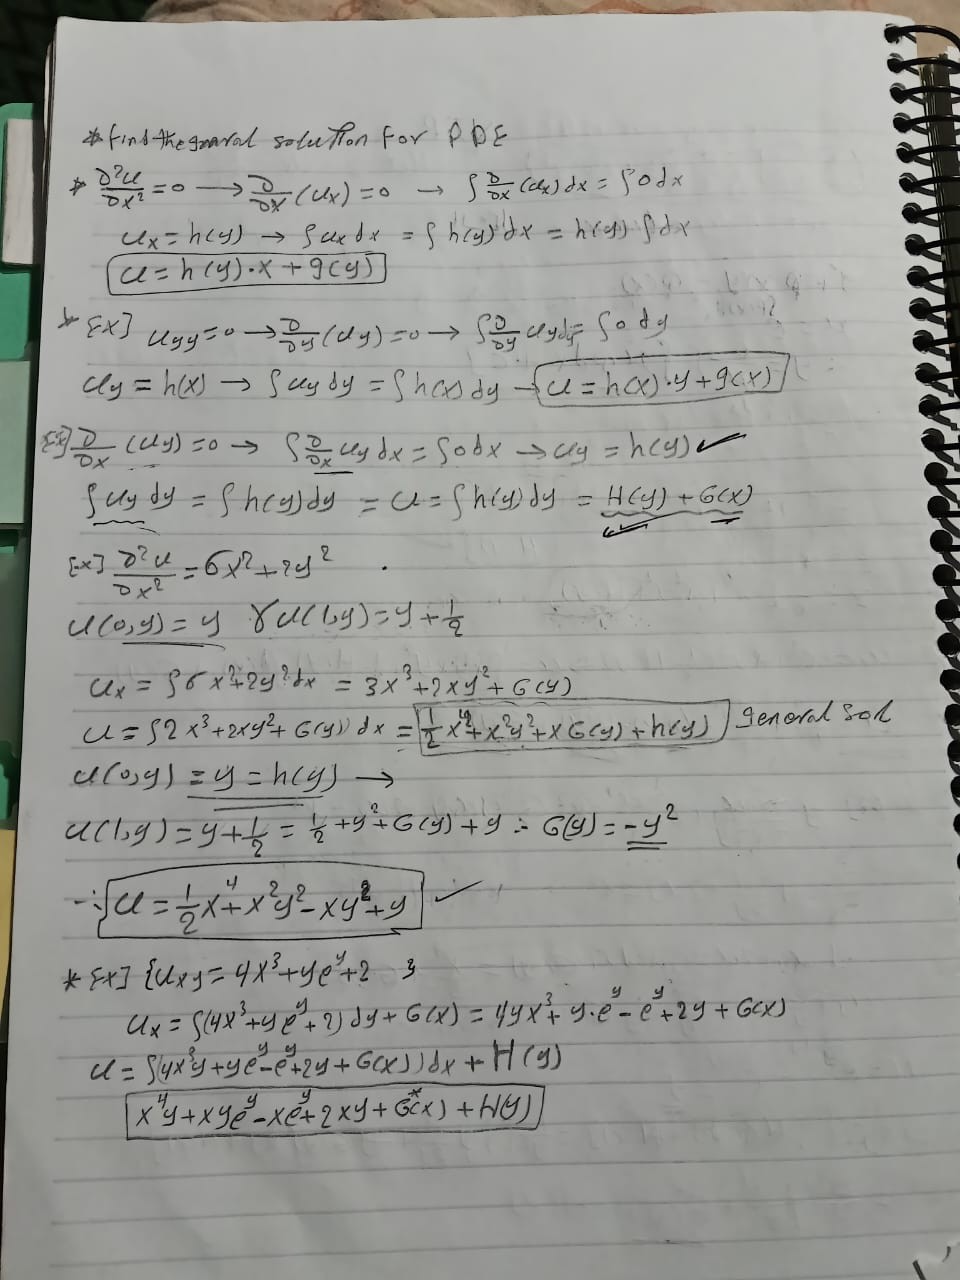 * find the general solution for PDE
* ∂²u/∂x² = 0 → ∂/∂x (ux) = 0 → ∫ ∂/∂x (ux) dx = ∫ 0 dx
ux = h(y) → ∫ ux dx = ∫ h(y) dx = h(y) ∫ dx
u = h(y)·x + g(y)
* Ex] uyy = 0 → ∂/∂y (uy) = 0 → ∫ ∂/∂y uy dy = ∫ 0 dy
uy = h(x) → ∫ uy dy = ∫ h(x) dy → u = h(x)·y + g(x)
Ex] ∂/∂x (uy) = 0 → ∫ ∂/∂x uy dx = ∫ 0 dx → uy = h(y) ✓
∫ uy dy = ∫ h(y) dy = u = ∫ h(y) dy = H(y) + G(x)
Ex] ∂²u/∂x² = 6x² + 2y²
u(0,y) = y & u(1,y) = y + 1/2
ux = ∫ 6x² + 2y² dx = 3x³ + 2xy² + G(y)
u = ∫ 2x³ + 2xy² + G(y)) dx = 1/2 x⁴ + x²y² + x G(y) + h(y) general sol
u(0,y) = y = h(y) →
u(1,y) = y + 1/2 = 1/2 + y² + G(y) + y ∴ G(y) = -y²
∴ u = 1/2 x⁴ + x²y² - xy² + y ✓
* Ex] {uxy = 4x³ + ye^y + 2 }
ux = ∫(4x³ + ye^y + 2) dy + G(x) = 4yx³ + y·e^y - e^y + 2y + G(x)
u = ∫(4x³y + ye^y - e^y + 2y + G(x)) dx + H(y)
x⁴y + xye^y - xe^y + 2xy + G*(x) + H(y)